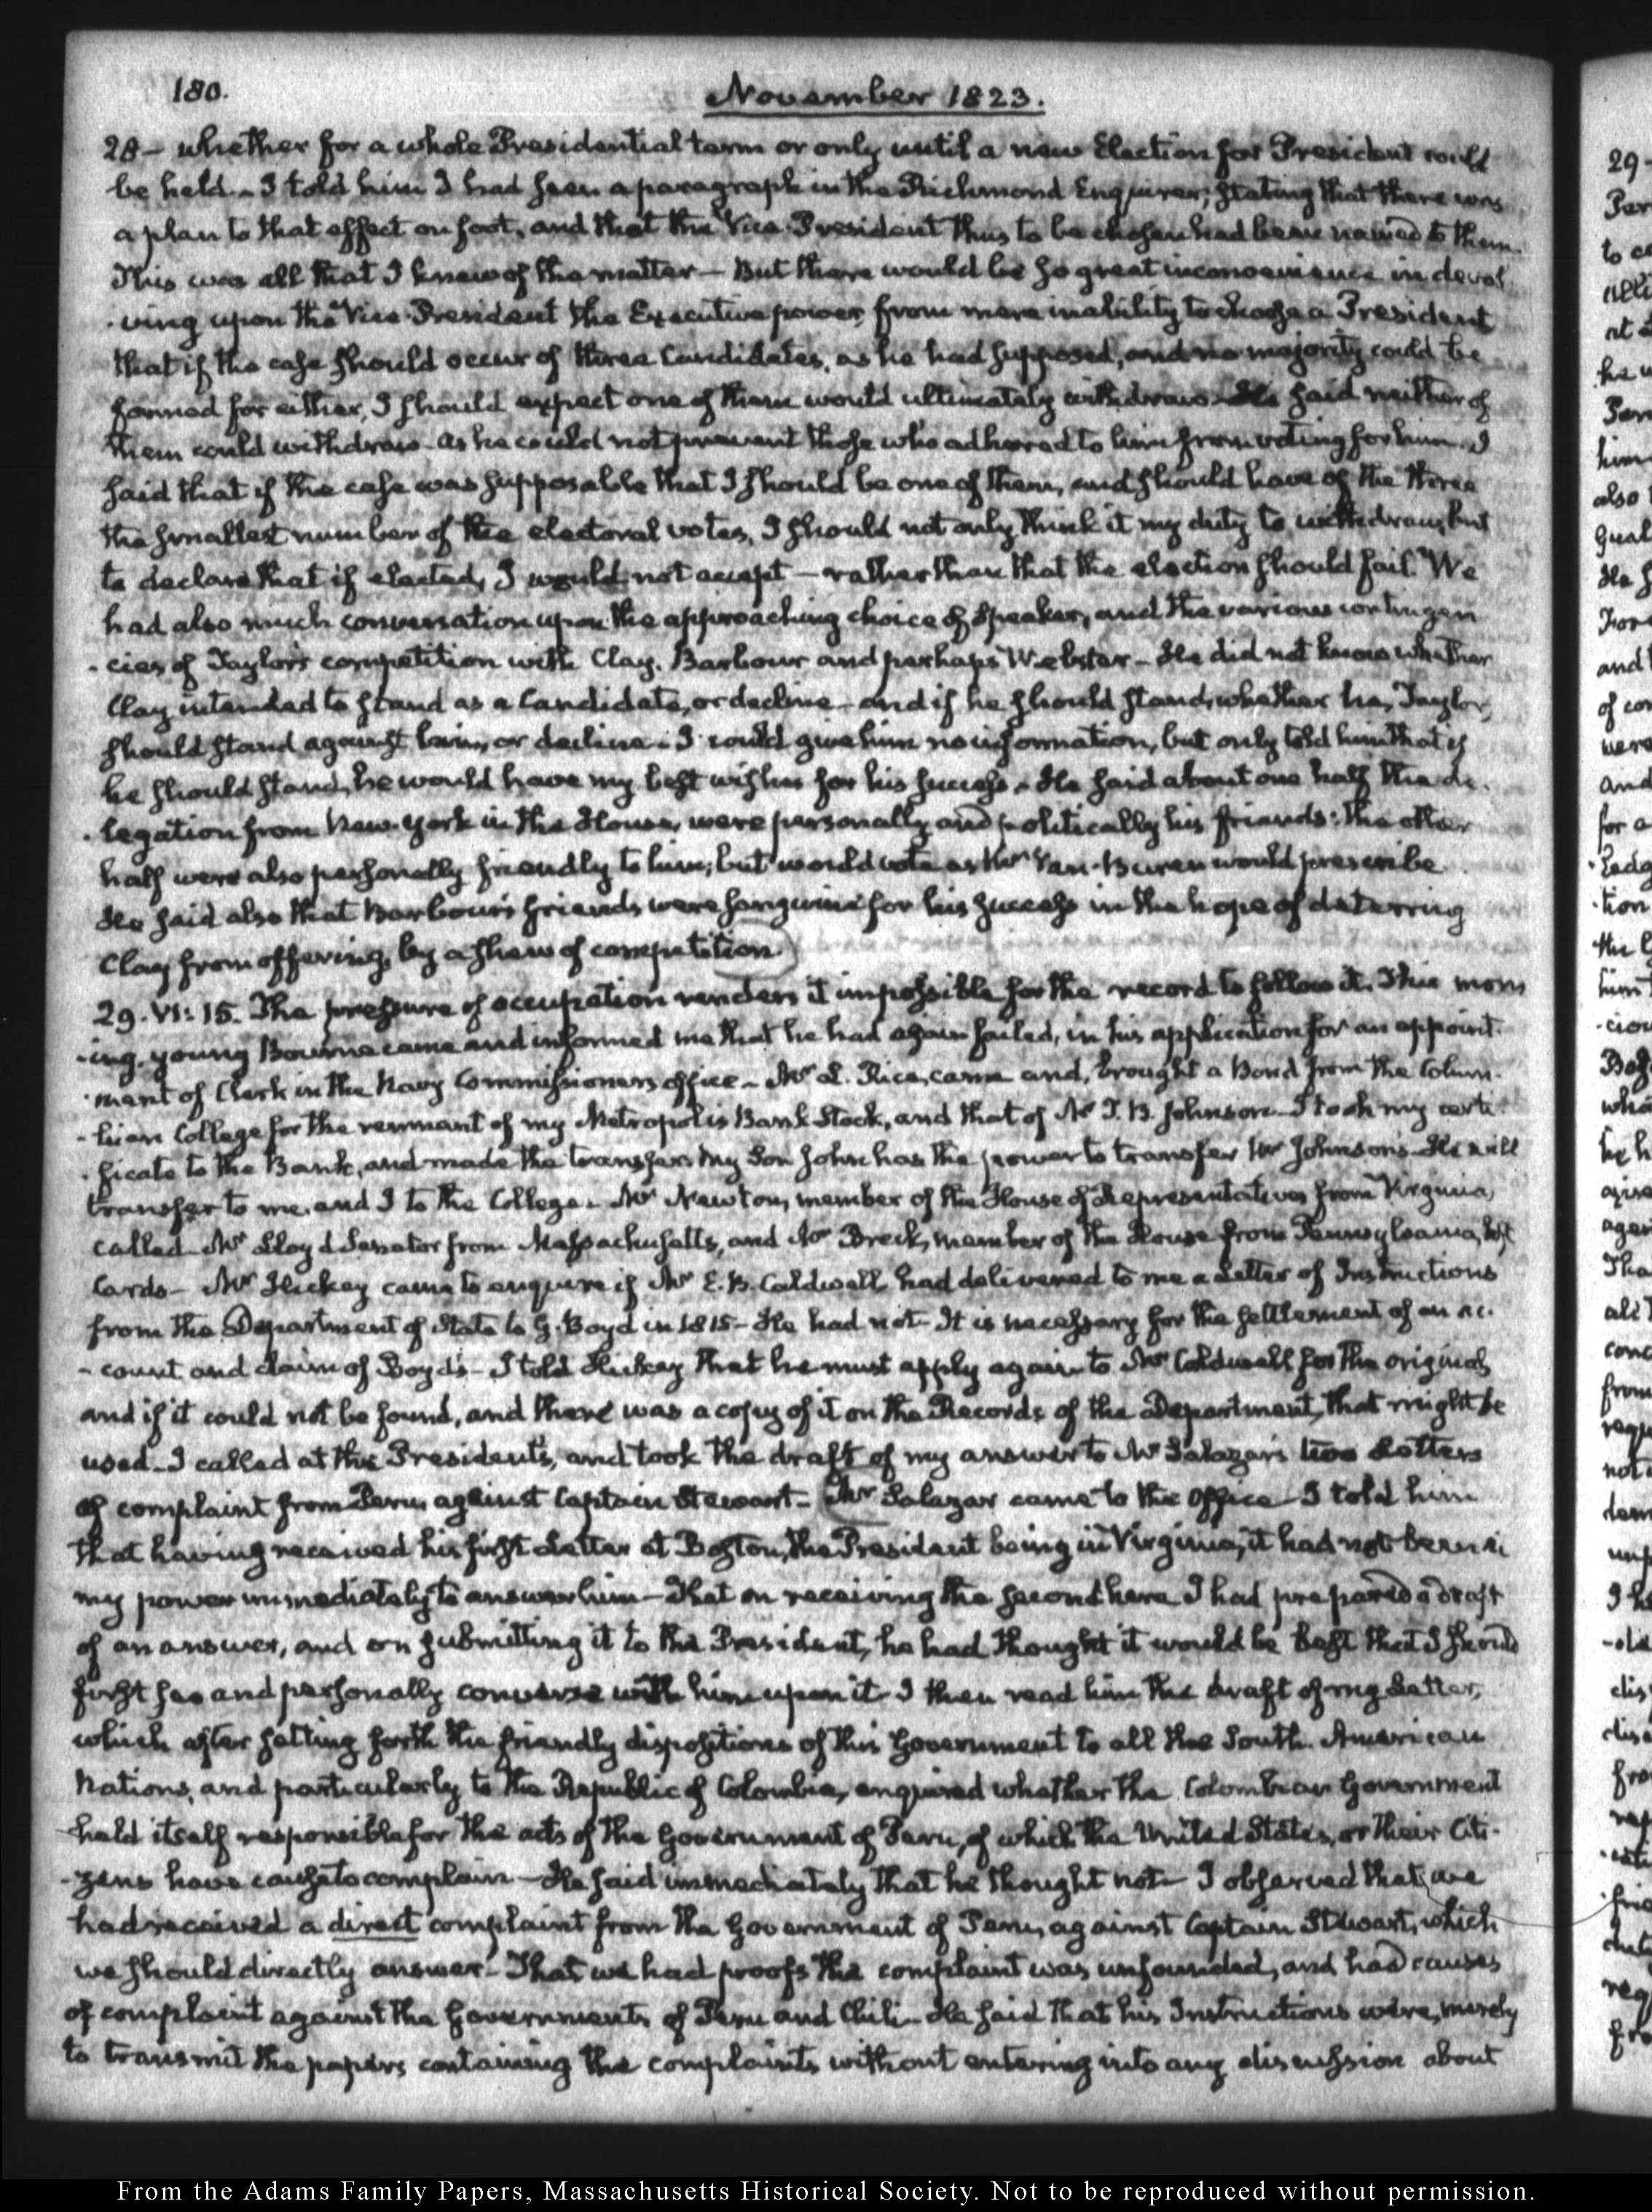 180.
November 1823.
28 – whether for a whole Presidential term or only until a new Election for President could
be held – I told him I had seen a paragraph in the Richmond Enquirer, stating that there was
a plan to that effect on foot, and that the Vice-President thus to be chosen had been named to them.
This was all that I knew of the matter – But there would be so great inconvenience in devol
-ving upon the Vice-President the Executive power, from mere inability to choose a President
that if the case should occur of three Candidates, as he had supposed, and no majority could be
formed for either, I should expect one of them would ultimately withdraw – He said neither of
them could withdraw – as he could not prevent those who adhered to him from voting for him. I
said that if the case was supposable that I should be one of them, and should have of the three
the smallest number of the electoral votes, I should not only think it my duty to withdraw, but
to declare that if elected, I would not accept – rather than that the election should fail. We
had also much conversation upon the approaching choice of Speaker, and the various contingen
-cies of Taylor's competition with Clay, Barbour and perhaps Webster – He did not know whether
Clay intended to stand as a Candidate, or decline – and if he should stand, whether he, Taylor,
should stand against him, or decline – I could give him no information, but only told him that if
he should stand, he would have my best wishes for his success – He said about one half the de-
-legation from New-York in the House, were personally and politically his friends: the other
half were also personally friendly to him; but would vote as Mr Van-Buren would prescribe
He said also that Barbour's friends were sanguine for his success in the hope of deterring
Clay from offering, by a shew of competition.
29. VI: 15. The pressure of occupation renders it impossible for the record to follow it. This morn
-ing, young Bourne came and informed me that he had again failed, in his application for an appoint-
-ment of Clerk in the Navy Commissioners office – Mr L. Rice, came and, brought a Bond from the Colum-
-bian College for the remnant of my Metropolis Bank Stock, and that of Mr T. B. Johnson – I took my certi-
-ficate to the Bank, and made the transfer. My Son John has the power to transfer Mr Johnson's – He will
transfer to me, and I to the College – Mr Newton, member of the House of Representatives from Virginia,
called – Mr Lloyd Senator from Massachusetts, and Mr Breck, member of the House from Pennsylvania, left
Cards – Mr Hickey came to enquire if Mr E. B. Caldwell had delivered to me a Letter of Instructions
from the Department of State to G. Boyd in 1815 – He had not – It is necessary for the settlement of an ac-
-count and claim of Boyd's – I told Hickey that he must apply again to Mr Caldwell for the original
and if it could not be found, and there was a copy of it on the Records of the Department, that might be
used – I called at the President's, and took the draft of my answer to Mr Salazar's two Letters
of complaint from Peru, against Captain Stewart – Mr Salazar came to the Office – I told him
that having received his first Letter at Boston, the President being in Virginia, it had not been in
my power immediately to answer him – That on receiving the second here I had prepared a draft
of an answer, and on submitting it to the President, he had thought it would be best that I should
first see and personally converse with him upon it – I then read him the draft of my Letter,
which after setting forth the friendly dispositions of this Government to all the South-American
Nations, and particularly to the Republic of Colombia, enquired whether the Colombian Government
held itself responsible for the acts of the Government of Peru, of which the United States, or their Citi-
-zens have cause to complain – He said immediately that he thought not – I observed that we
had received a direct complaint from the Government of Peru, against Captain Stewart, which
we should directly answer – That we had proofs the complaint was unfounded, and had causes
of complaint against the Governments of Peru and Chili – He said that his Instructions were, merely
to transmit the papers containing the complaints without entering into any discussion about
From the Adams Family Papers, Massachusetts Historical Society. Not to be reproduced without permission.